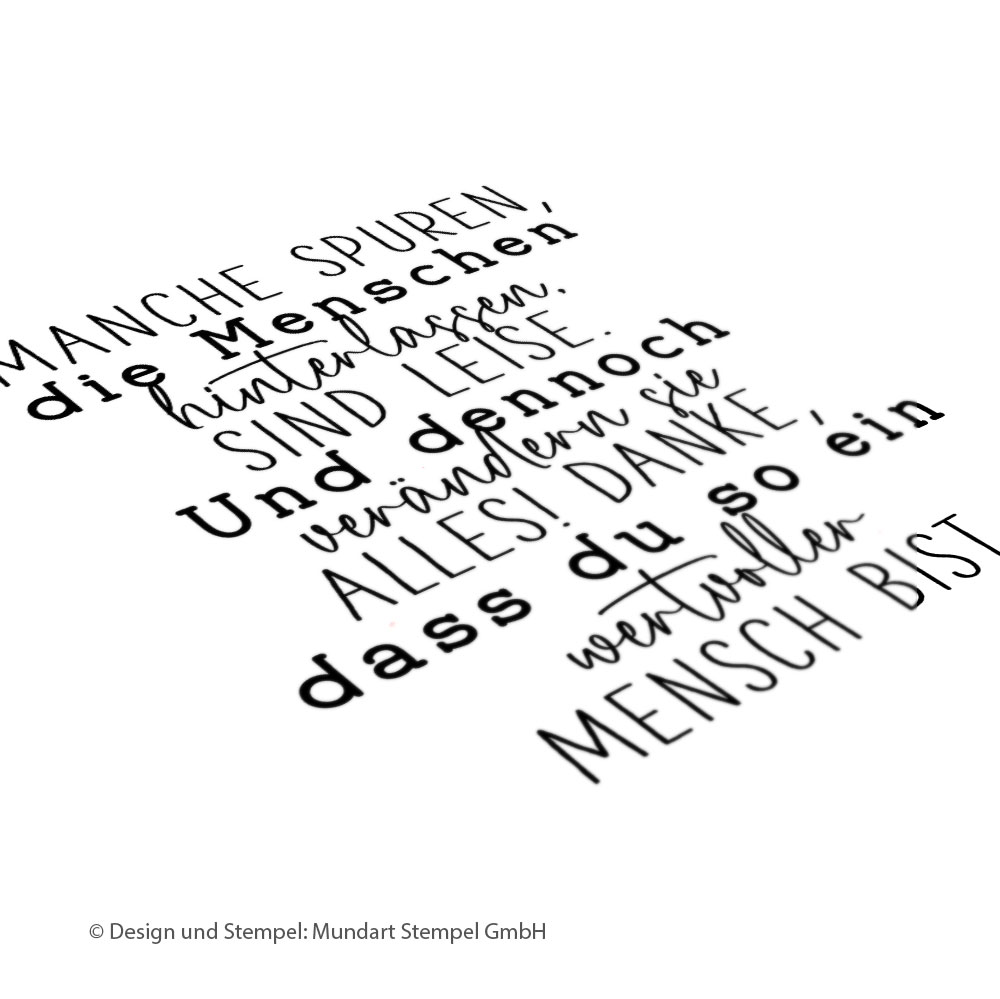 MANCHE SPUREN,
die Menschen
hinterlassen.
SIND LEISE.
Und dennoch
verändern sie
ALLES! DANKE,
dass du so ein
wertvoller
MENSCH BIST
© Design und Stempel: Mundart Stempel GmbH